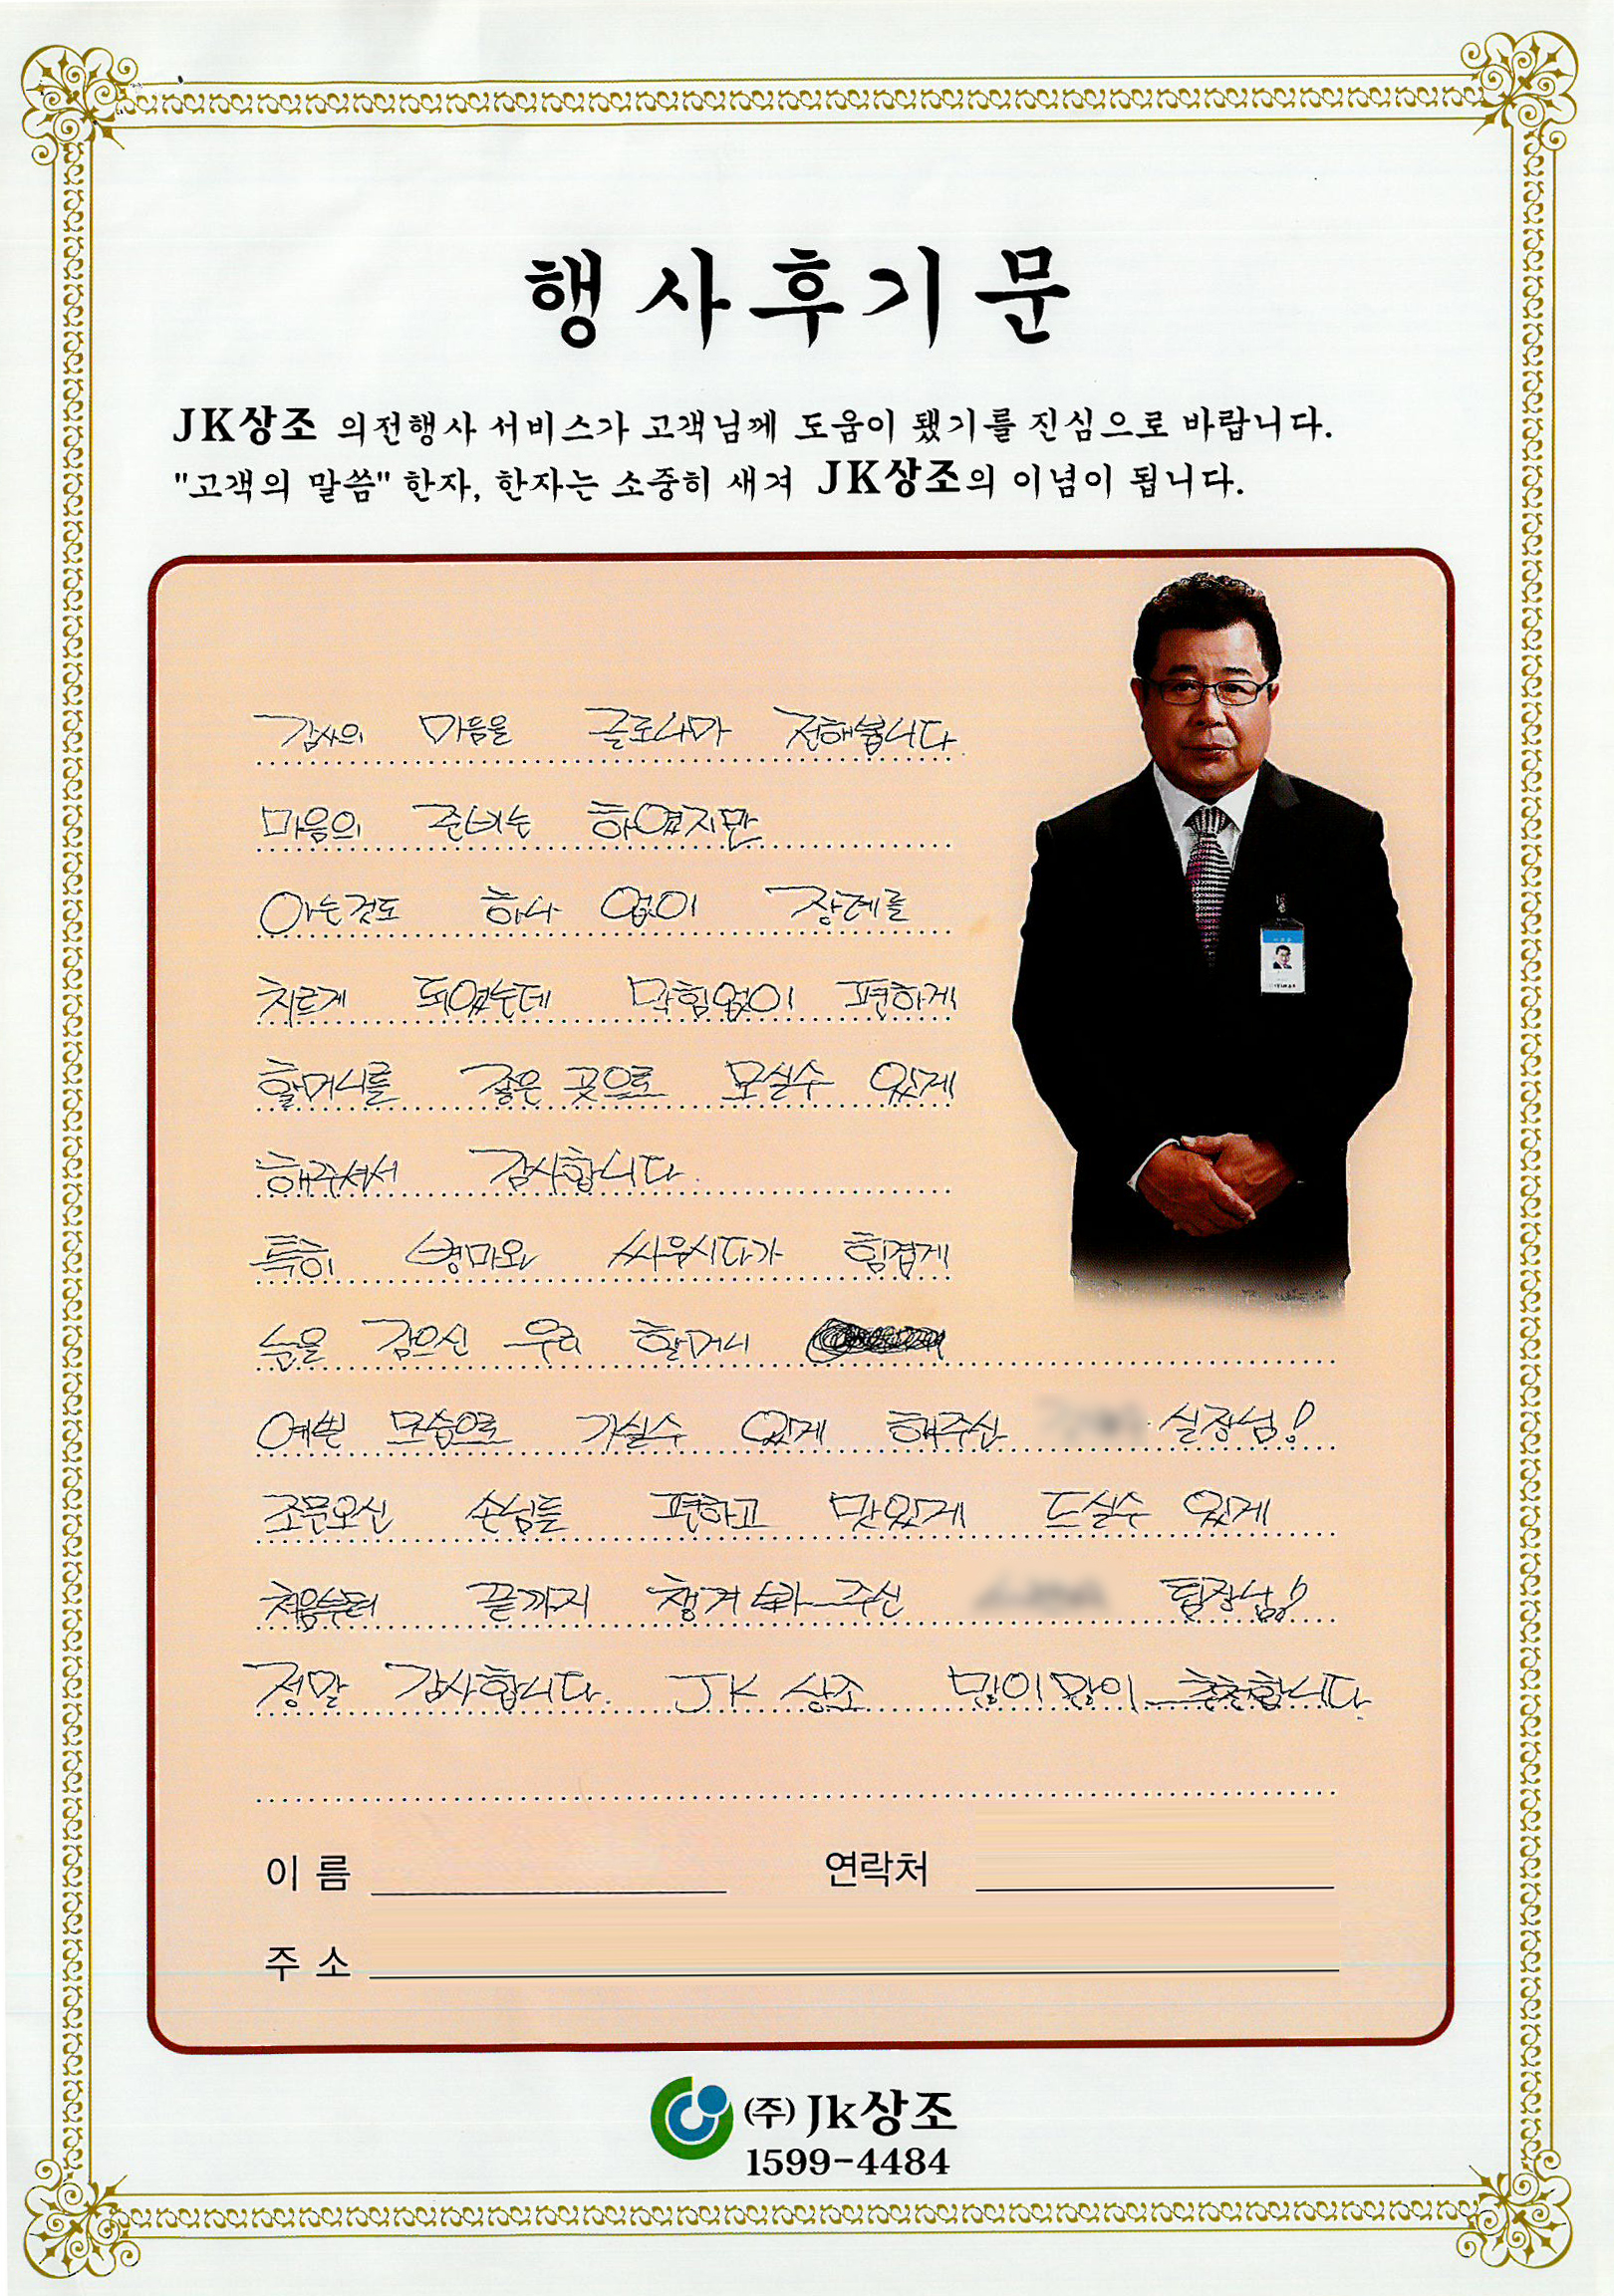 행사후기문
JK상조 의전행사 서비스가 고객님께 도움이 됐기를 진심으로 바랍니다.
"고객의 말씀" 한자, 한자는 소중히 새겨 JK상조의 이념이 됩니다.
감사의 마음을 글로나마 전해봅니다.
마음의 준비는 하였지만
아는것도 하나 없이 장례를
치르게 되었는데 막힘없이 편하게
할머니를 좋은 곳으로 모실수 있게
해주셔서 감사합니다.
특히 병마와 싸우시다가 힘겹게
눈을 감으신 우리 할머니
예쁜 모습으로 가실수 있게 해주신 실장님!
조문오신 손님들 편하고 맛있게 드실수 있게
처음부터 끝까지 챙겨 봐 주신 팀장님!
정말 감사합니다. JK 상조 많이많이 추천합니다.
이 름 연락처
주 소
(주) Jk상조
1599-4484